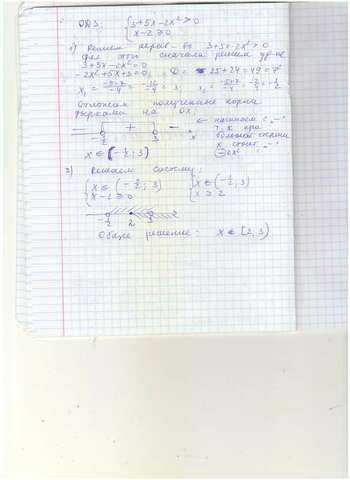 ОДЗ: { 3+5x-2x²>0
x-2≥0
1) Решаем нерав-во 3+5x-2x²>0
Для этого сначала решим ур-ие
3+5x-2x²=0
-2x²+5x+3=0 D= 25+24=49=7²
x₁ = (-5-7)/-4 = -12/-4 = 3 x₂ = (-5+7)/-4 = -2/4 = -1/2
Отложим полученные корни
дырками на OX.
- + - ← начинаем с „-"
-1/2 3 x т.к. при
большей степени
x ∈ (-1/2; 3) x стоит „-"
-2x²
2) Решаем систему:
{ x ∈ (-1/2; 3) { x ∈ (-1/2; 3)
x-2≥0 x ≥ 2
-1/2 2 3
Общее решение: x ∈ [2; 3)